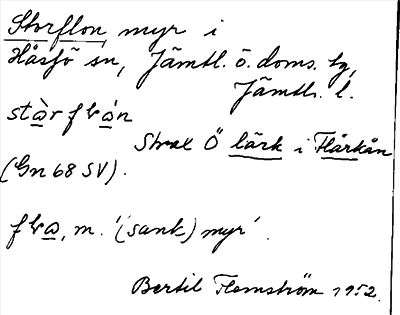 Storflon, myr i
Håsjö sn, Jämtl. ö. doms. tg,
Jämtl. l.
stàr flán
Strax Ö lärk i Flärkån
(Gn 68 SV).
fla, m. '(sank) myr'.
Bertil Flemström 1952.